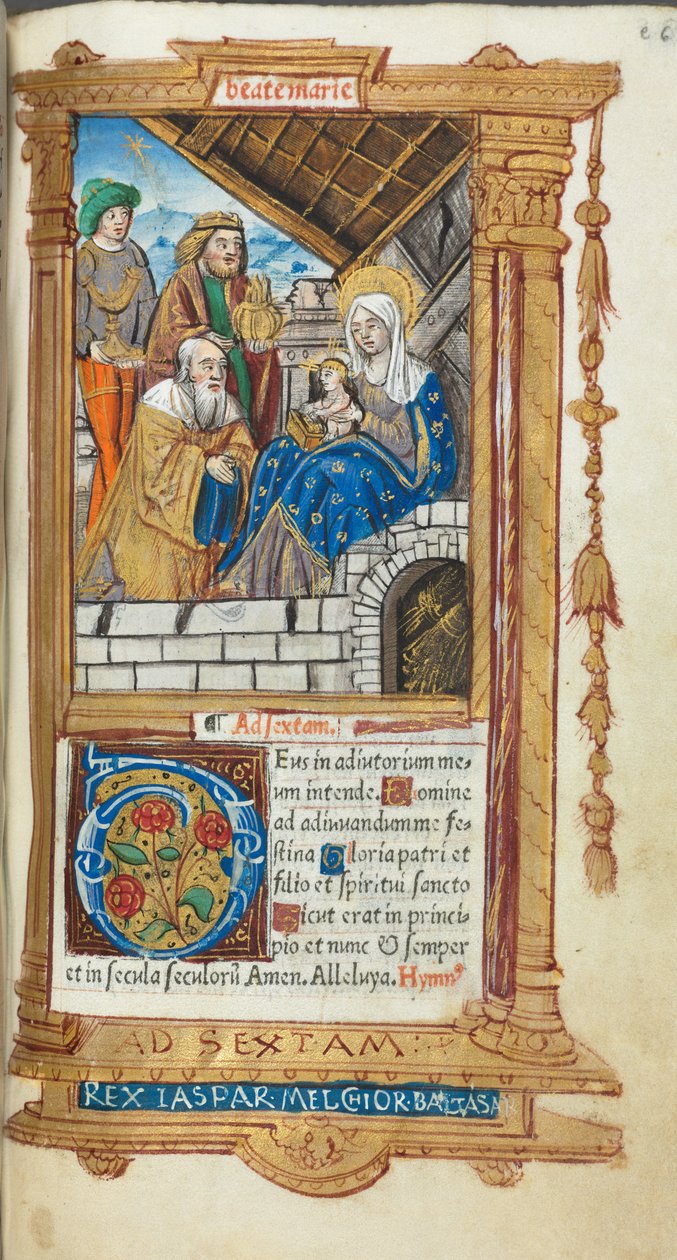 e 6
beate marie
¶ Ad sextam.
Eus in adiutorium me-
um intende. Domine
ad adiuuandum me fe-
stina Gloria patri et
filio et spiritui sancto
Sicut erat in princi-
pio et nunc & semper
et in secula seculorū Amen. Alleluya. Hymnꝰ
AD SEXTAM:
REX IASPAR·MELCHIOR·BALTASAR